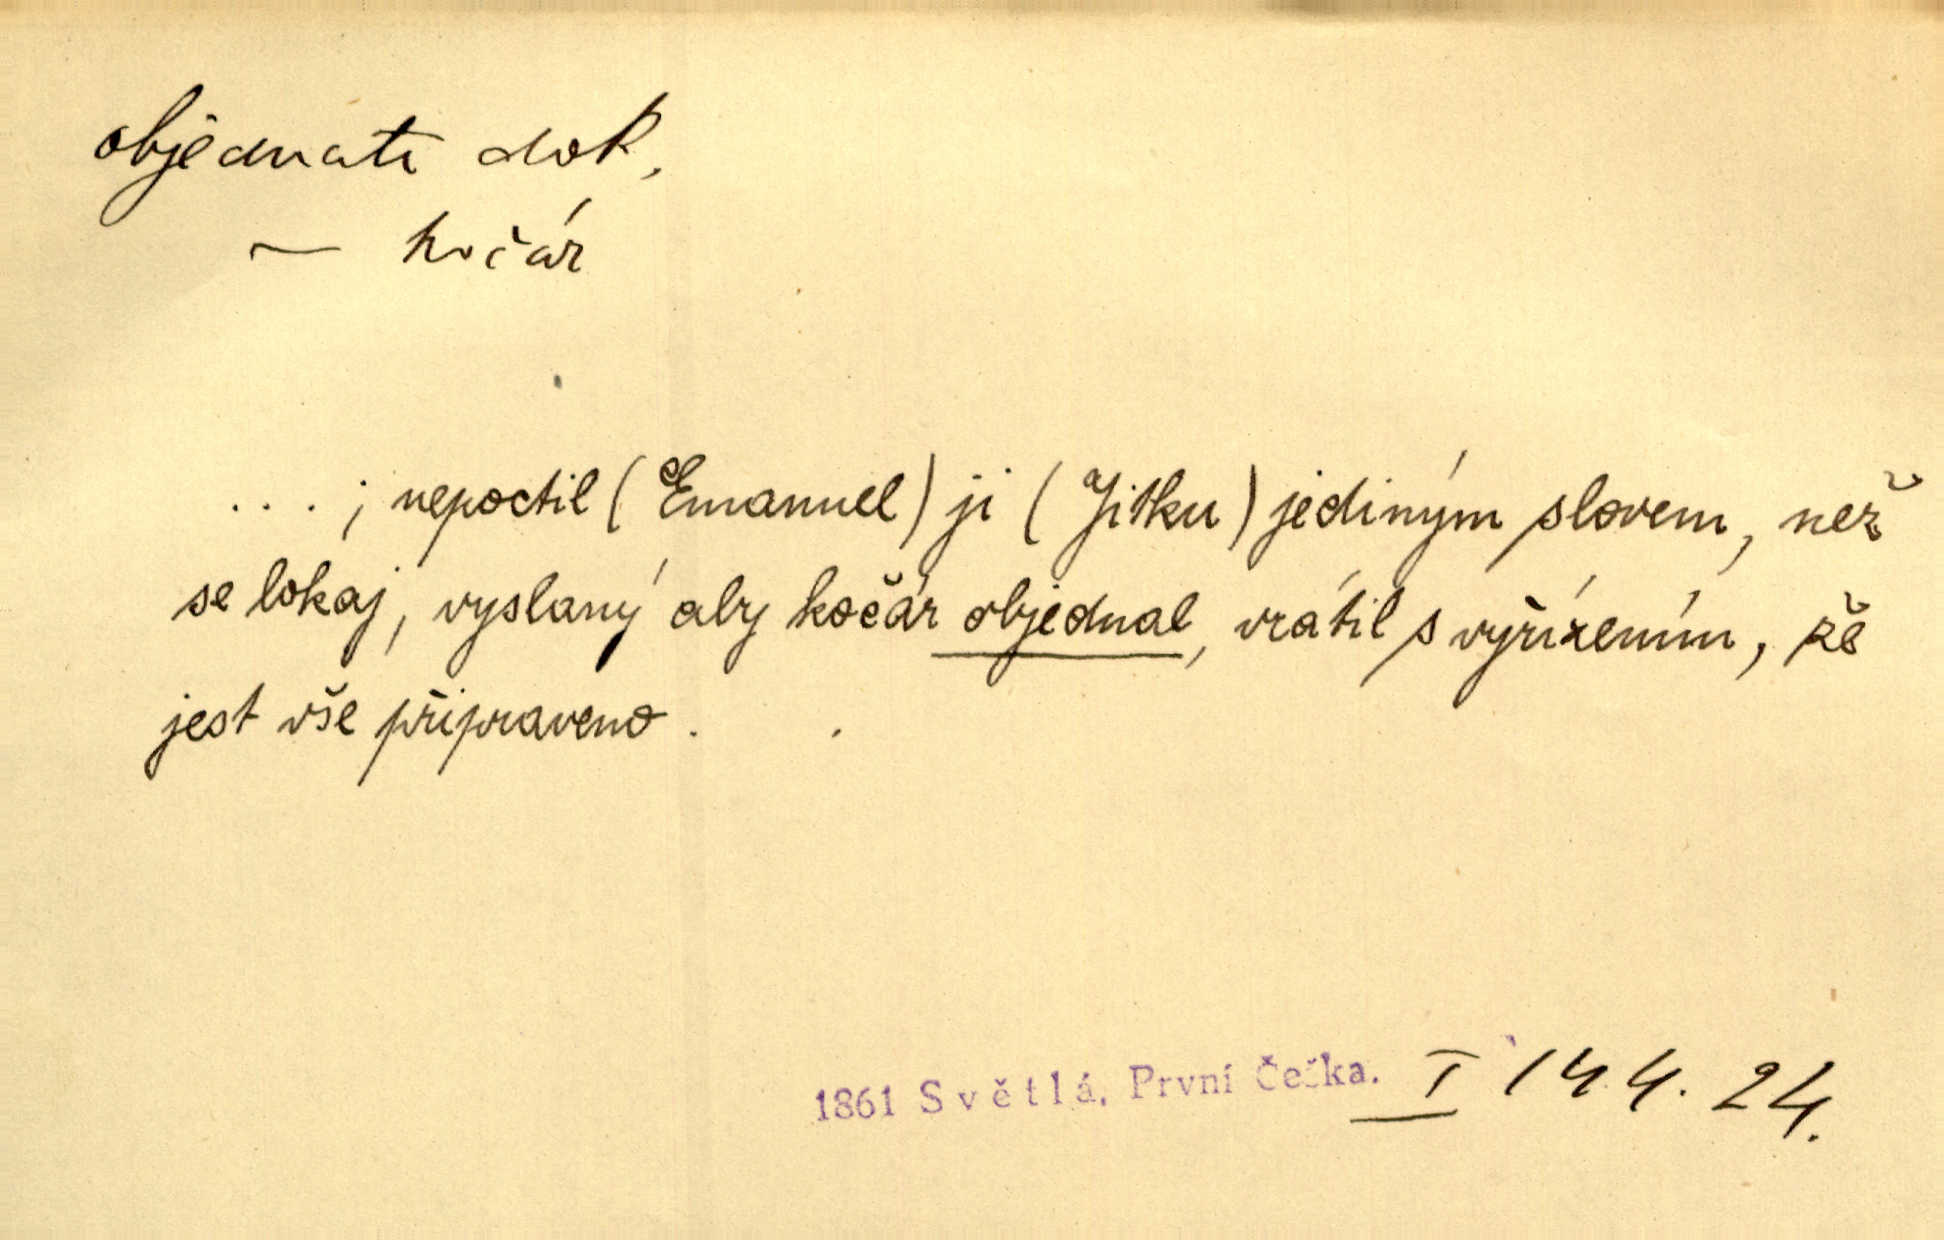 objednati dok.
— kočár
. . . ; nepoctil (Emanuel) ji (Jitku) jediným slovem, než
se lokaj, vyslaný aby kočár objednal, vrátil s vyřízením, že
jest vše připraveno .
1861 Světlá, První Češka. I 144. 24.